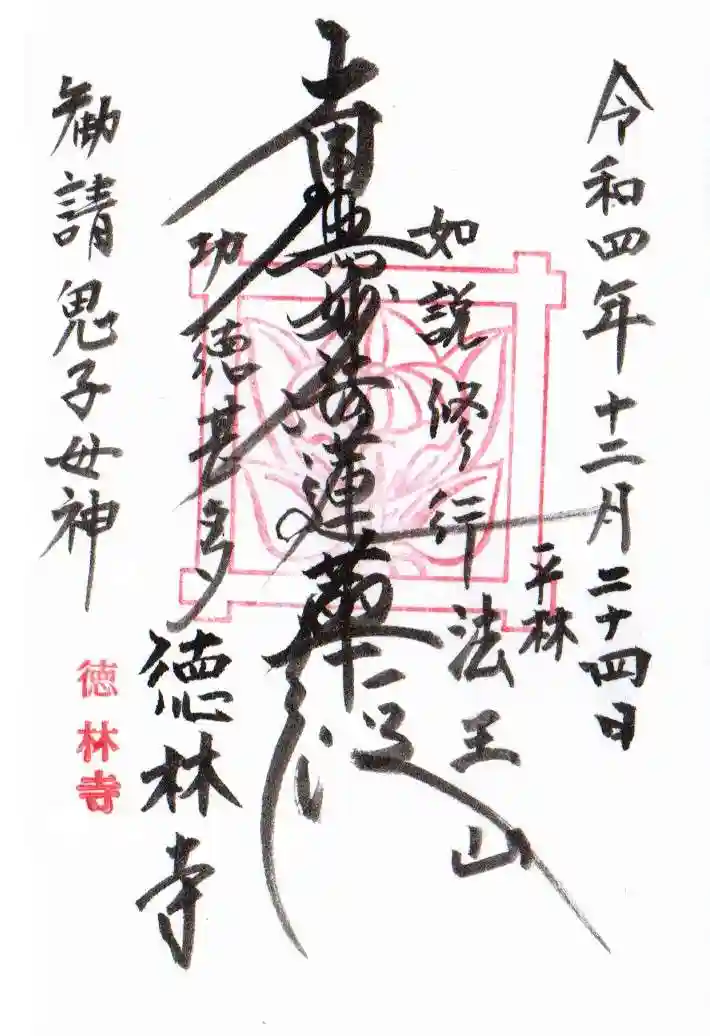 令和四年十二月二十四日
平林
如説修行
法王山
南無妙法蓮華経
功徳甚多
徳林寺
勧請鬼子母神
徳林寺